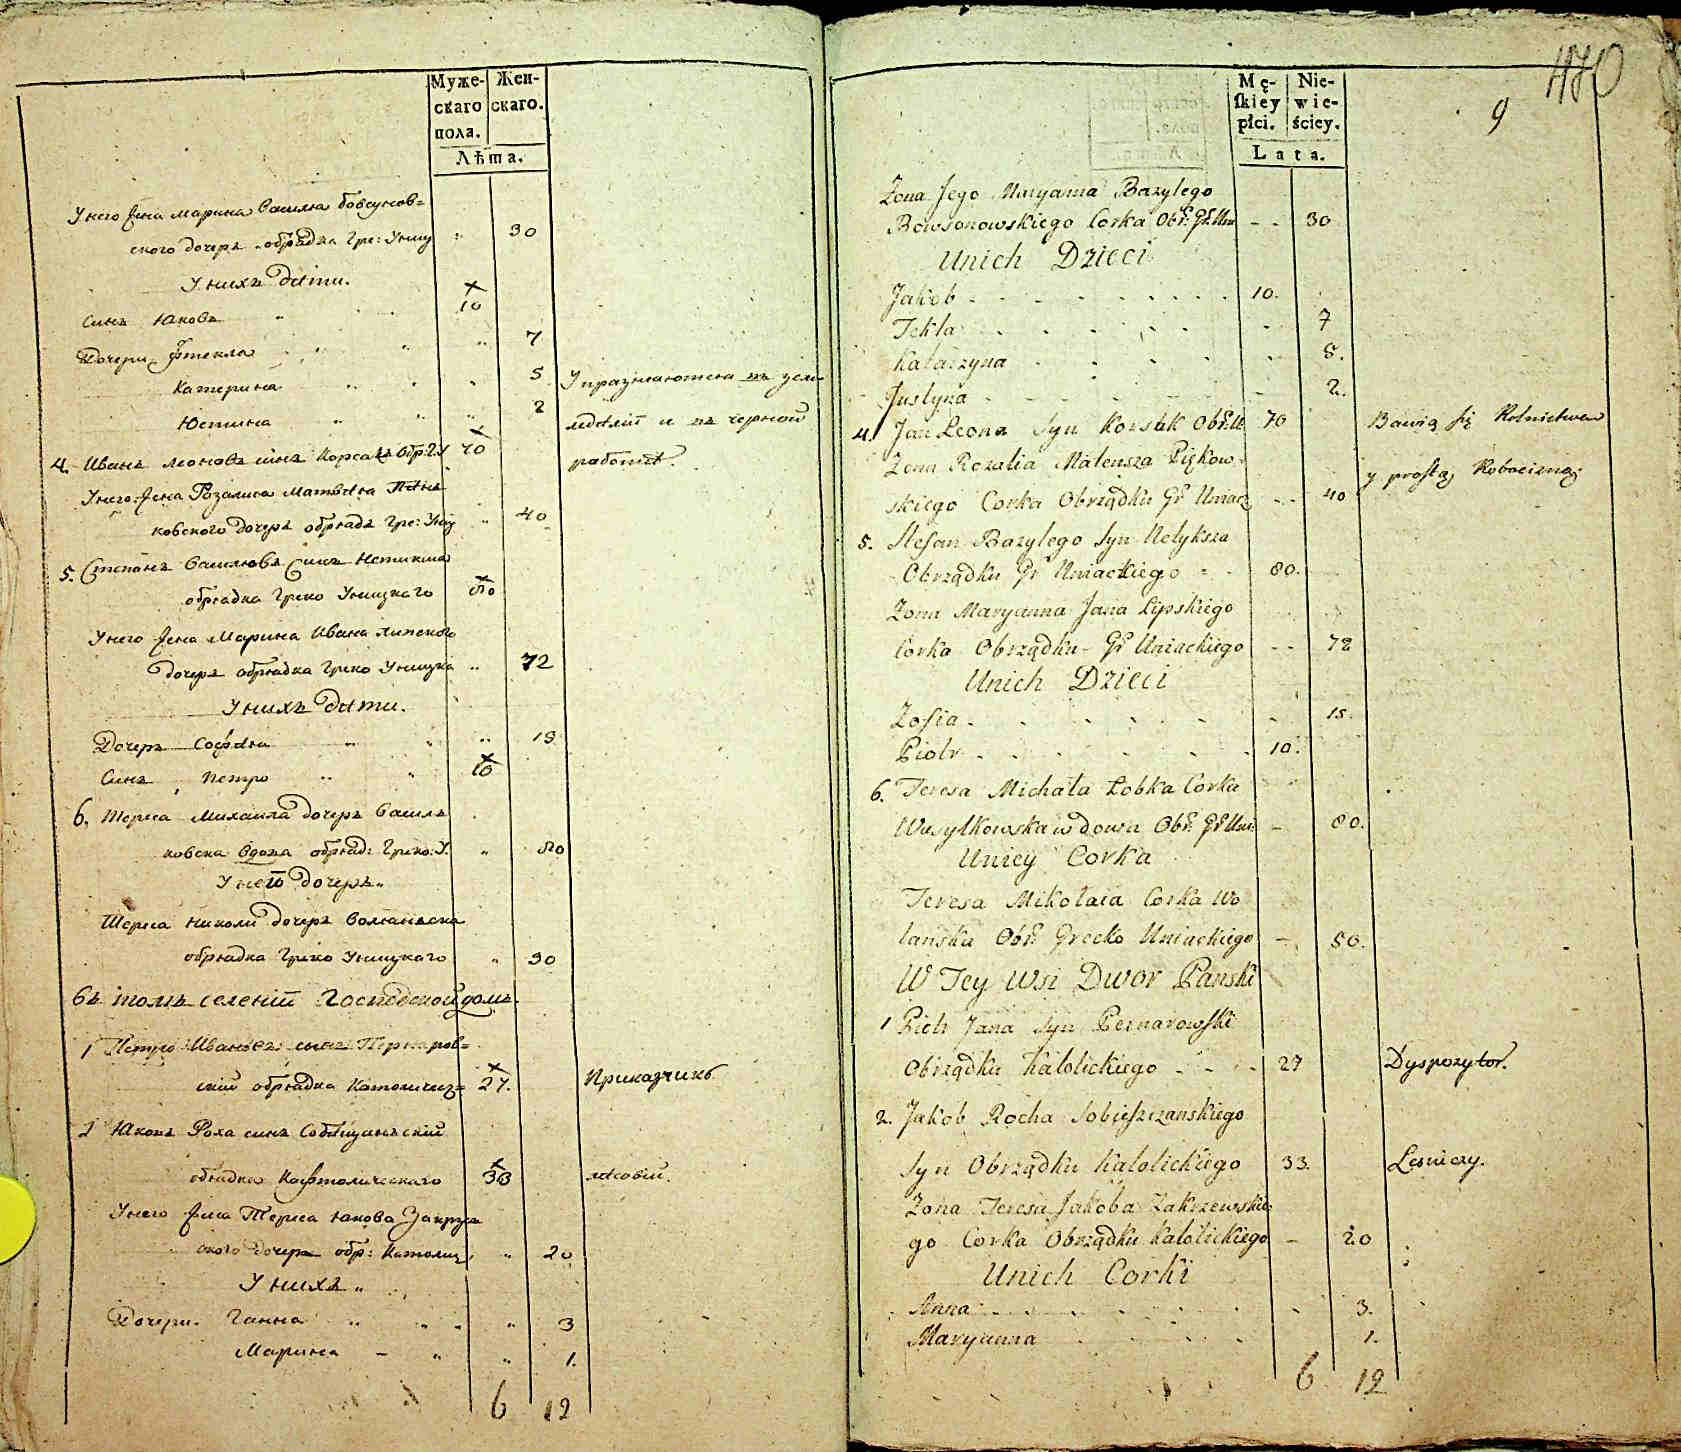 Муже-
скаго
пола.
Жен-
скаго.
Лѣта.
У него жена Марина Василя Бовсунов=
ского дочерь обрядка Гре: Униц „ 30
У нихъ дѣти.
Синъ Юковъ „ 10
Дочери Фтекла „ 7
Катерина „ 5
Юстина „ 2
Упражняются въ зем-
ледѣлiи и въ черной
работѣ.
4. Иванъ Леоновъ синъ Корсакъ Обр: Г: У 70
У него жена Розалиа Матвѣя Пѣнь
ковского дочерь обрядъ Гре: Униц „ 40
5. Степанъ Васильовъ Синъ Нетикша
обрядка Греко Уницкаго 80
У него жена Марина Ивана Липского
дочерь обрядка Греко Уницка „ 72
У нихъ дѣти.
Дочерь Софѣя „ 15
Синъ Петро „ 10
6. Тереса Михаила дочерь Василь
ковска вдова обряд: Греко: У. „ 80
У неѣ дочерь „
Тереса Николи дочерь Воляньска
обрядка Греко Уницкаго „ 50
Въ томъ селенiи Господской домъ.
1 Петро Ивановъ сынъ Пернаров=
скiй обрядка Католичес= 27.
Приказчикъ
2 Юковъ Роха синъ Собѣщаньскiй
обрядка Кафтолическаго 33
лѣсовiй.
У него жена Тереса Юкова Закржев
ского дочерь обр: Католиц „ 20
У нихъ „
Дочери Ганна „ „ 3
Марина „ 1.
6 12
470
9
Mę-
skiey
płci.
Nie-
wie-
ściey.
Lata.
Zona Jego Maryanna Bazylego
Bowsonowskiego Corka Obr: Gr: Un - - 30
Unich Dzieci
Jakób 10.
Tekla 7
Katarzyna 5.
Justyna 2.
4. Jan Leona Syn Korsak Obr: U 70
Bawią się Rolnictwem
y prostą Robocizną.
Zona Rozalia Mateusza Piękow
skiego Corka Obrządku Gr Uniac - - 40
5. Stefan Bazylego Syn Netyksza
Obrządku Gr Uniackiego - 80.
Zona Maryanna Jana Lipskiego
Corka Obrządku Gr Uniackiego - - 72
Unich Dzieci
Zofia 15.
Piotr 10.
6. Teresa Michała Łobka Corka
Wasylkowska wdowa Obr: Gr: Uni: - 80.
Uniey Corka
Teresa Mikołaia Corka Wo
lanska Obr: Grecko Uniackiego - 50.
W Tey Wsi Dwor Panski
1 Piotr Jana Syn Pernarowski
Obrządku Katolickiego - - 27
Dyspozytor.
2. Jakob Rocha Sobieszczanskiego
Syn Obrządku Katolickiego 33.
Leśniczy.
Zona Teresa Jakoba Zakrzewskie
go Corka Obrządku Katolickiego - 20
Unich Corki
Anna 3.
Maryanna 1.
6 12